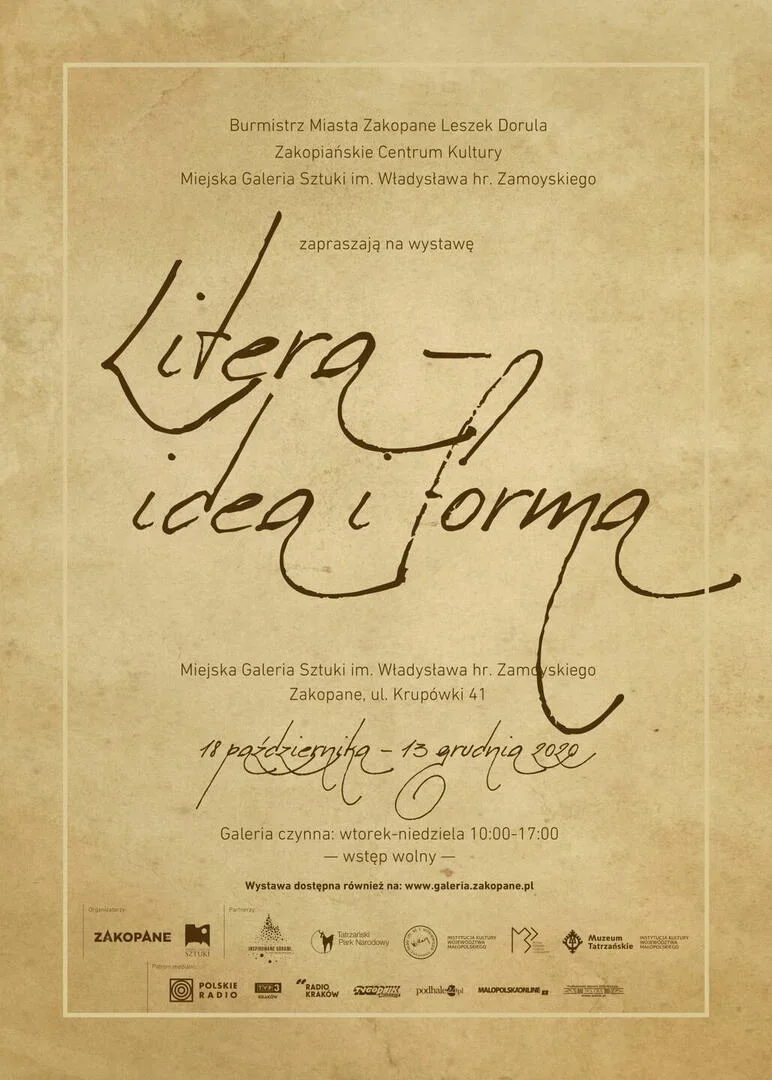 Burmistrz Miasta Zakopane Leszek Dorula
Zakopiańskie Centrum Kultury
Miejska Galeria Sztuki im. Władysława hr. Zamoyskiego
zapraszają na wystawę
Litera –
idea i forma
Miejska Galeria Sztuki im. Władysława hr. Zamoyskiego
Zakopane, ul. Krupówki 41
18 października – 13 grudnia 2020
Galeria czynna: wtorek-niedziela 10:00-17:00
— wstęp wolny —
Wystawa dostępna również na: www.galeria.zakopane.pl
Organizatorzy:
Partnerzy:
ZAKOPANE
SZTUKI
INSPIROWANE GÓRAMI
Tatrzański
Park Narodowy
INSTYTUCJA KULTURY
WOJEWÓDZTWA
MAŁOPOLSKIEGO
Muzeum
Tatrzańskie
INSTYTUCJA KULTURY
WOJEWÓDZTWA
MAŁOPOLSKIEGO
Patroni medialni:
POLSKIE
RADIO
TVP3
KRAKÓW
RADIO
KRAKÓW
TYGODNIK
podhale24.pl
MALOPOLSKAONLINE